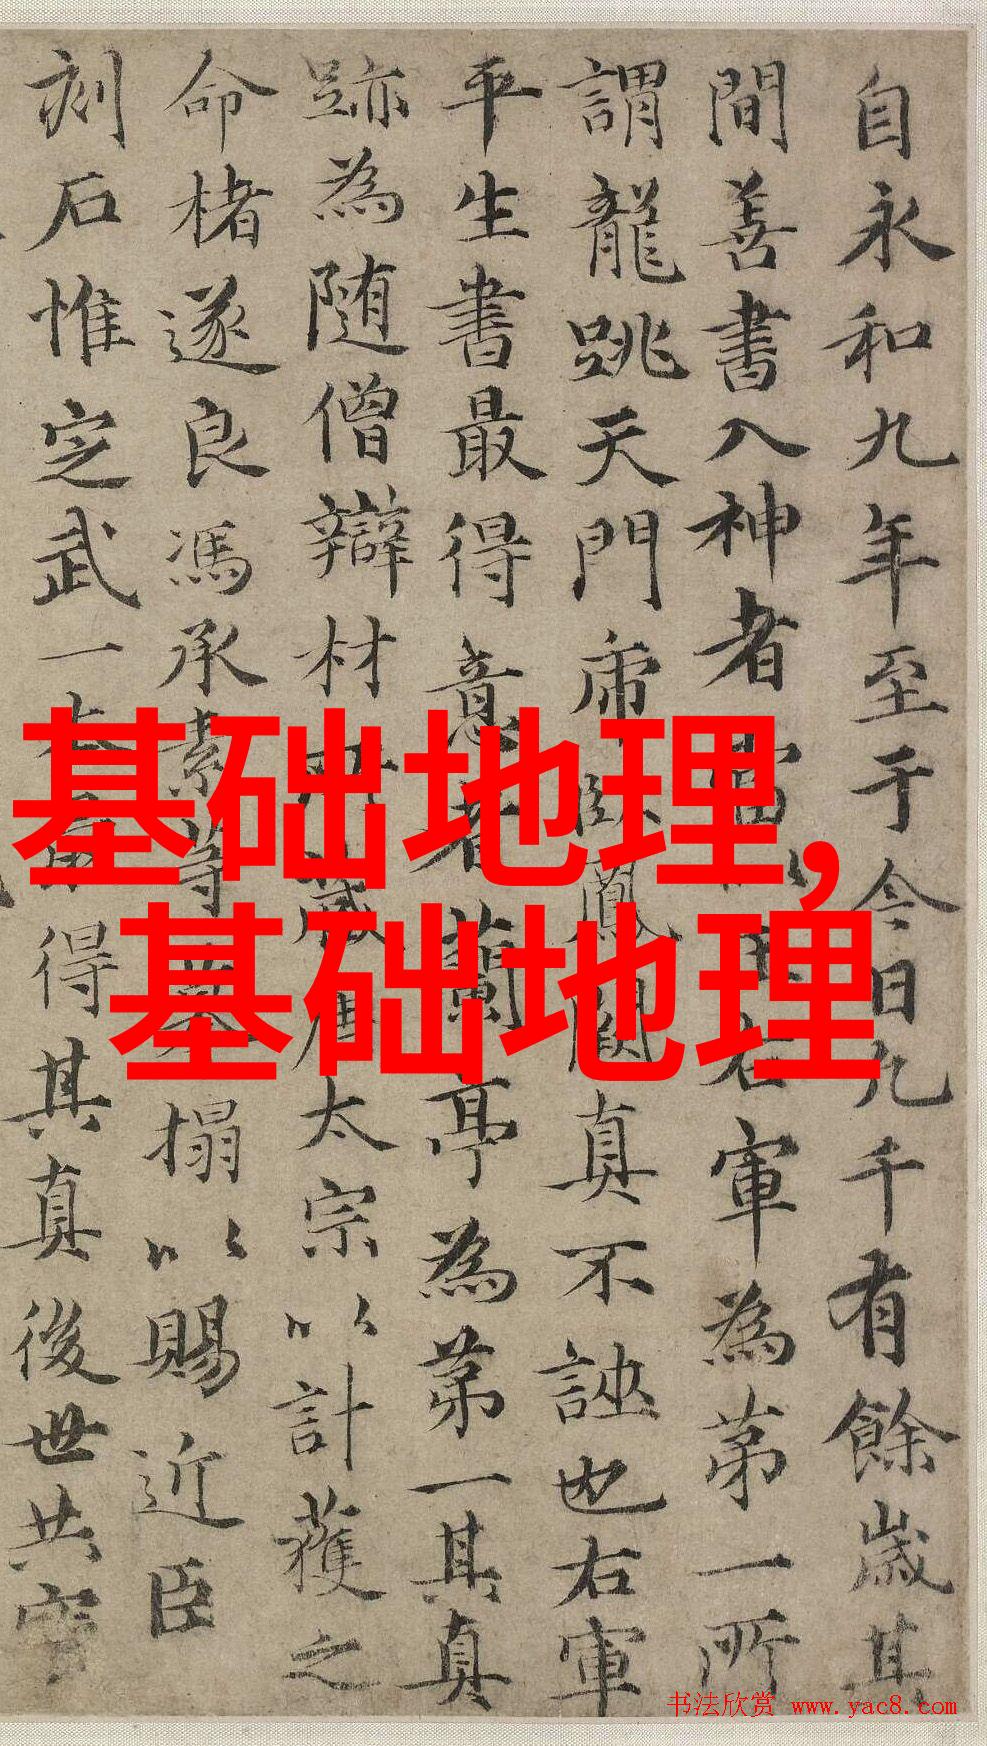 自永和九年至于今日凡千有餘歲其
間善書入神者當以王右軍為第一所
謂龍跳天門虎臥鳳閣真不誣也右軍
平生書最得意者蘭亭為第一其真
跡為隨僧辯材藏唐太宗以計獲之
命楮遂良馮承素等摹搨以賜近臣
刻石惟定武一本得其真後世共寶
基础地理,
基础地理
书法欣赏 www.yac8.com